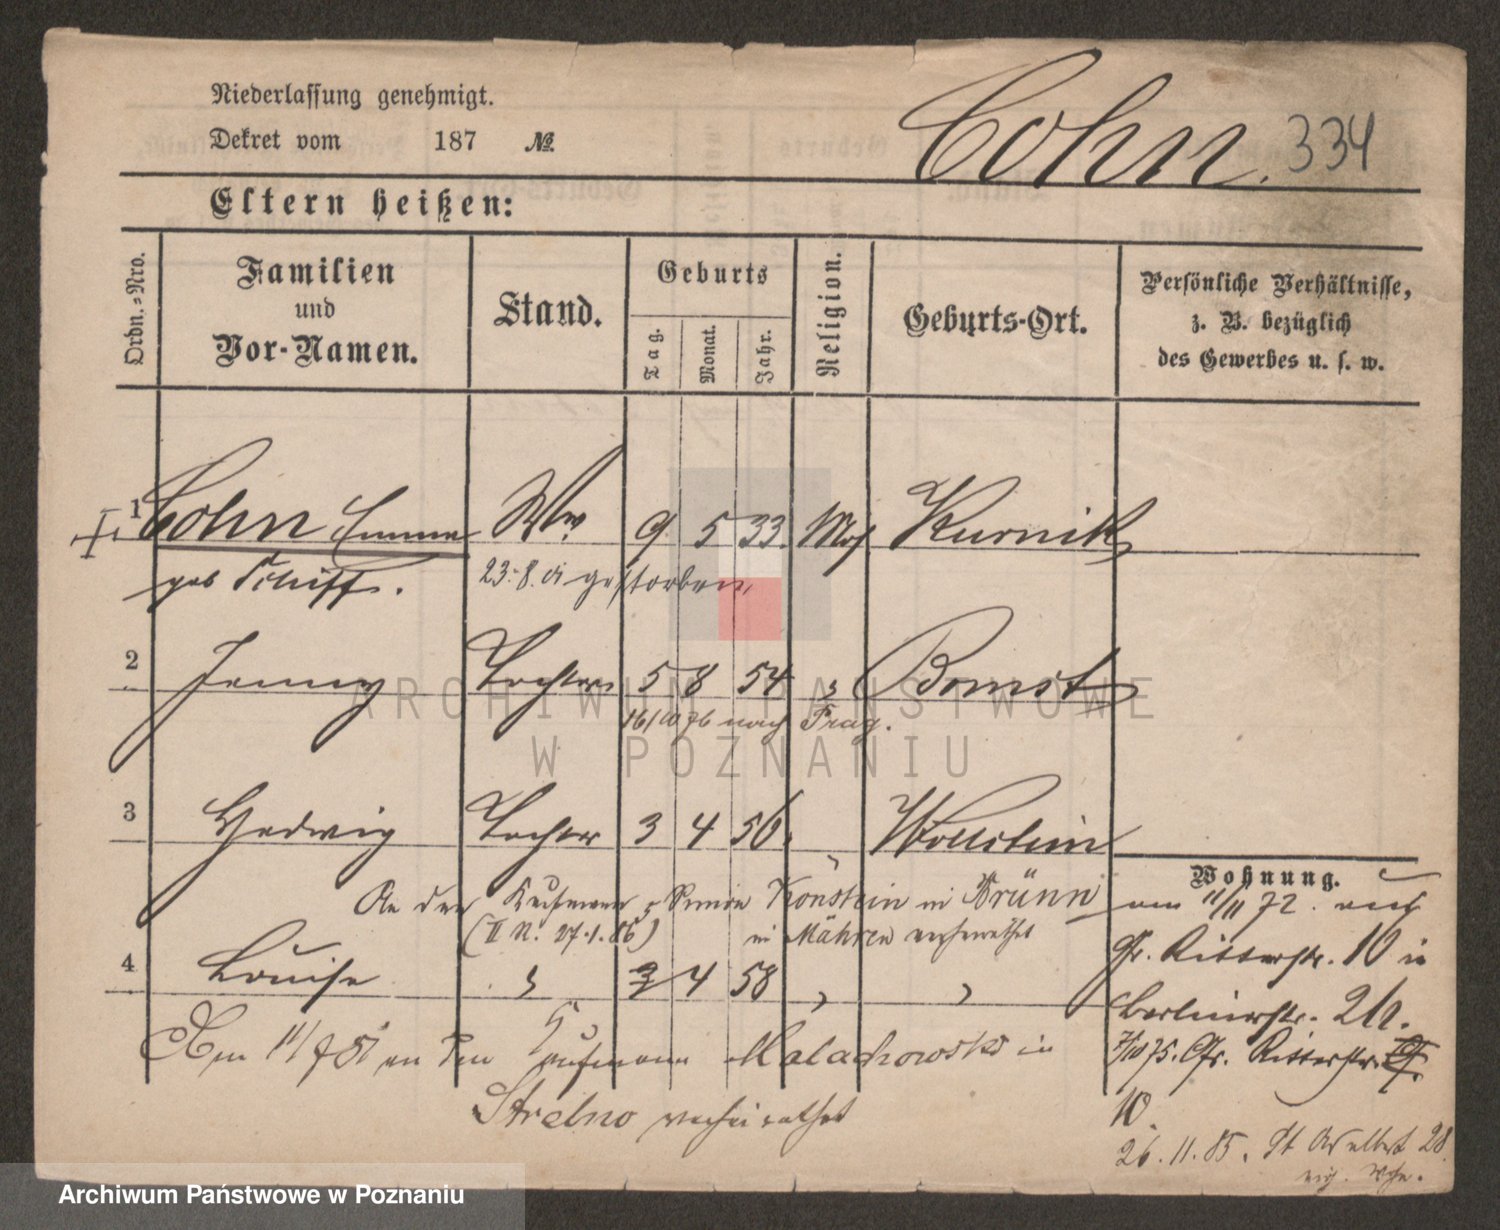 Niederlassung genehmigt.
Dekret vom 187 №.
Cohn. 334
Eltern heißen:
Ordn.-Nro.
Familien
und
Vor-Namen.
Stand.
Geburts
Tag.
Monat.
Jahr.
Religion.
Geburts-Ort.
Persönliche Verhältnisse,
z. B. bezüglich
des Gewerbes u. s. w.
1 Cohn Emma Ww 9 5 33. Mos Kurnik
geb Schiff. 23.8. gestorben
2 Jenny Tochter 5 8 54 " Bomst
16/10 76 nach Prag.
3 Hedwig Tochter 3 4 56. Wollstein
Wohnung.
An den Kaufmann Simon Königstein in Brünn
am 11/11 72. auf
(II N. 27.1.86) in Mähren verheirathet
Gr. Ritterstr. 10 in
4 Louise " 3 4 58 " "
Berlinerstr.
Am an den Kaufmann Malachowski in
7/10 75. Gr. Ritterstr.
Strelno verheirathet
10.
26.11.85. St Adalbert 28.
ARCHIWUM PAŃSTWOWE
W POZNANIU
Archiwum Państwowe w Poznaniu